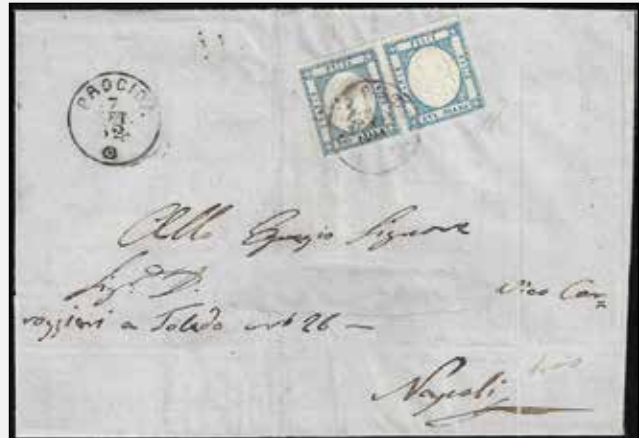 PROCIDA
7
62
Allo Egregio Signore
Sig. D.
Vico Car
roggieri a Toledo n° 26 —
Napoli